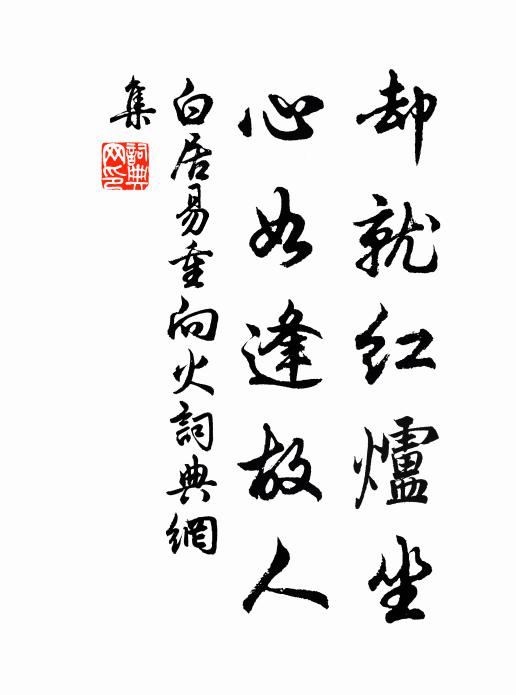 却就红爐坐
心如逢故人
白居易重向火詞典網
集
詞典
网印